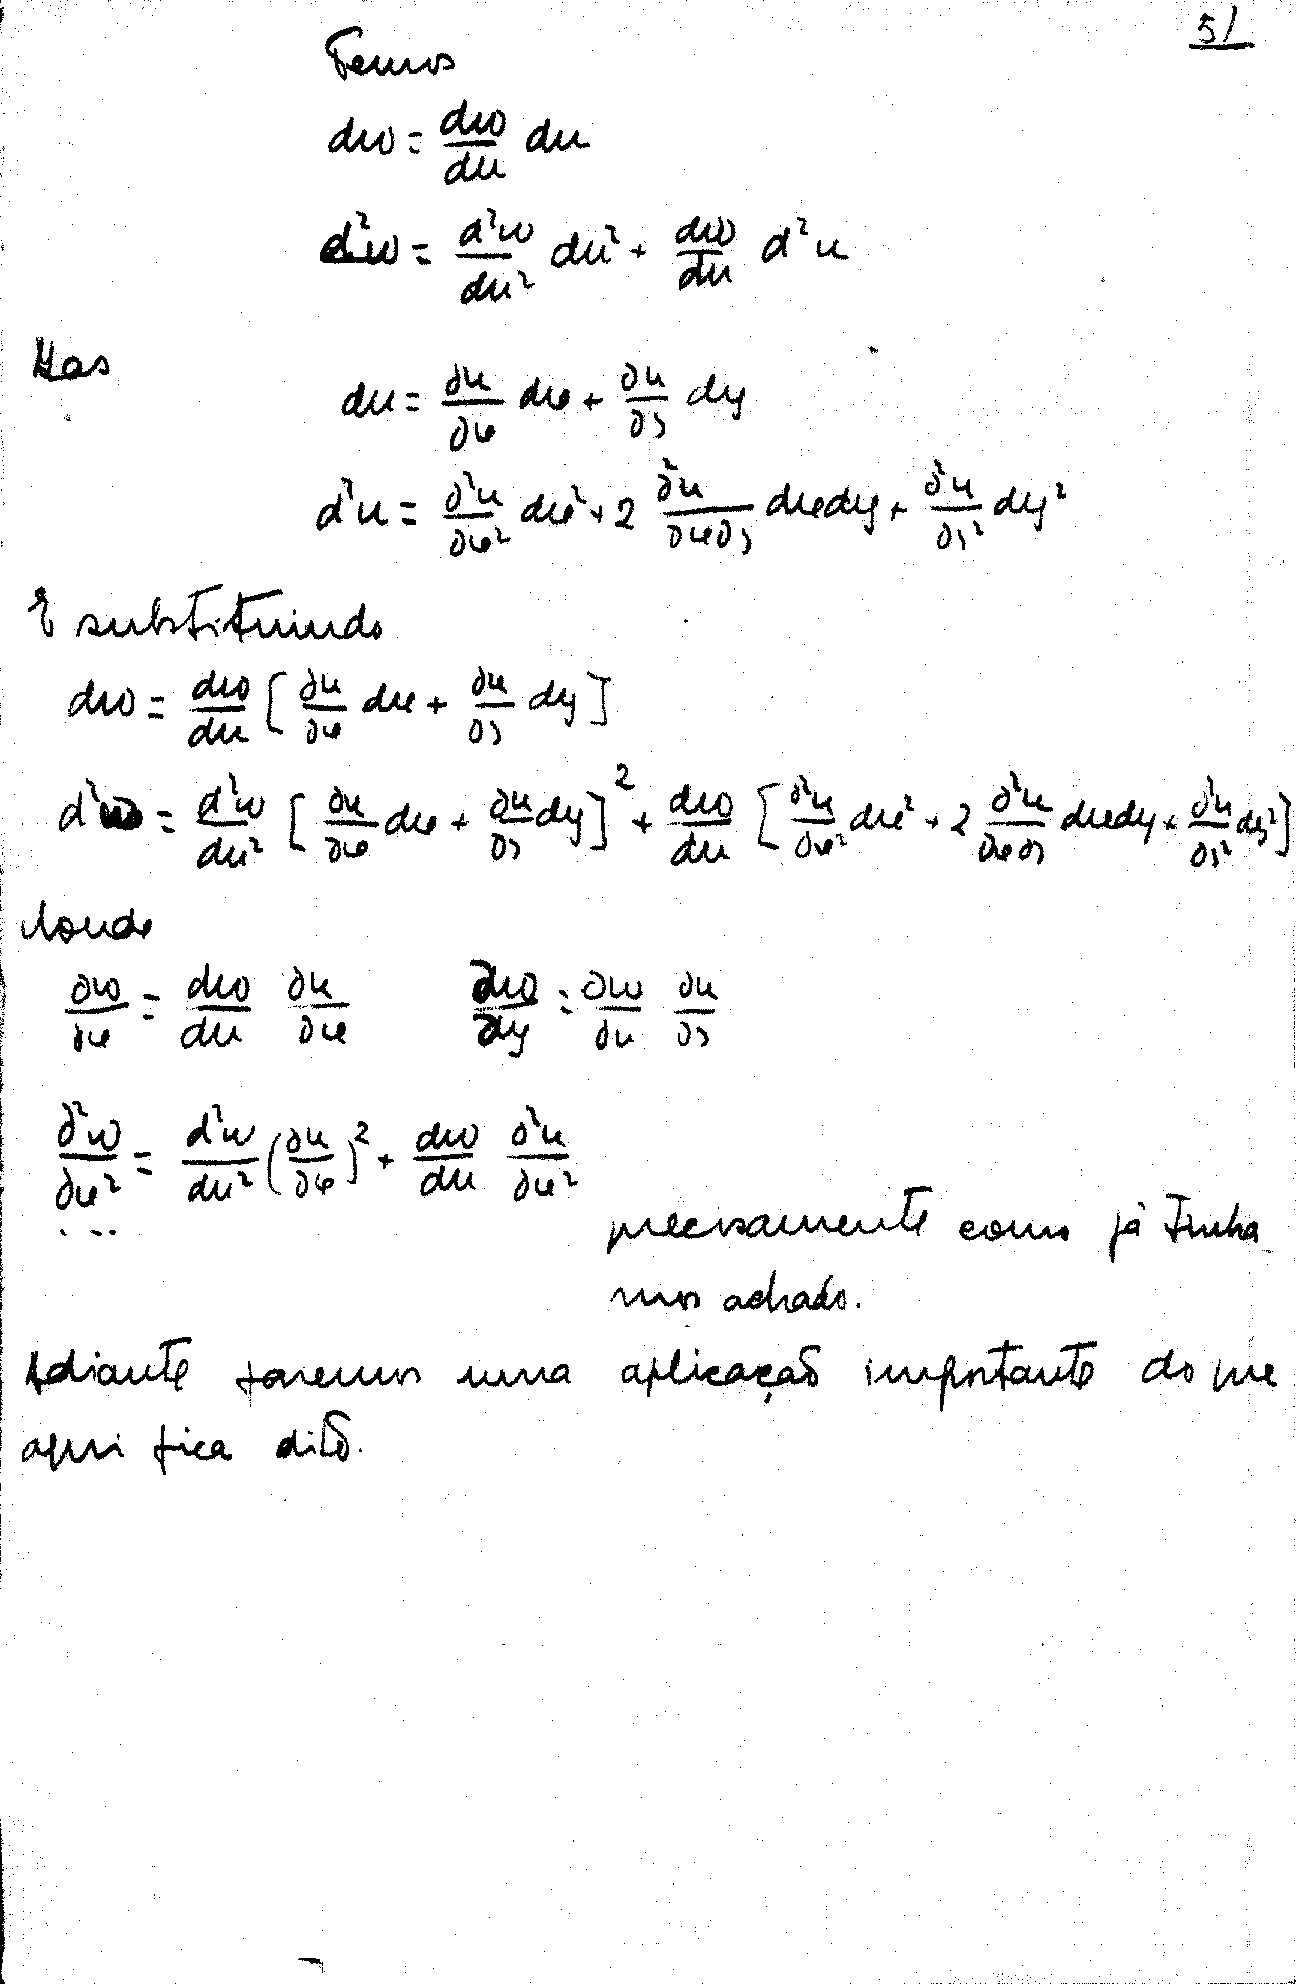 51
Temos
dω = dω/du du
d²ω = d²ω/du² du² + dω/du d²u
Mas
du = ∂u/∂x dx + ∂u/∂y dy
d²u = ∂²u/∂x² dx² + 2 ∂²u/∂x∂y dxdy + ∂²u/∂y² dy²
E substituindo
dω = dω/du [ ∂u/∂x dx + ∂u/∂y dy ]
d²ω = d²ω/du² [ ∂u/∂x dx + ∂u/∂y dy ]² + dω/du [ ∂²u/∂x² dx² + 2 ∂²u/∂x∂y dxdy + ∂²u/∂y² dy² ]
donde
∂ω/∂x = dω/du ∂u/∂x ∂ω/∂y = ∂ω/∂u ∂u/∂y
∂²ω/∂x² = d²ω/du² (∂u/∂x)² + dω/du ∂²u/∂x²
...
precisamente como já tinha
mos achado.
Adiante faremos uma aplicação importante do que
aqui fica dito.